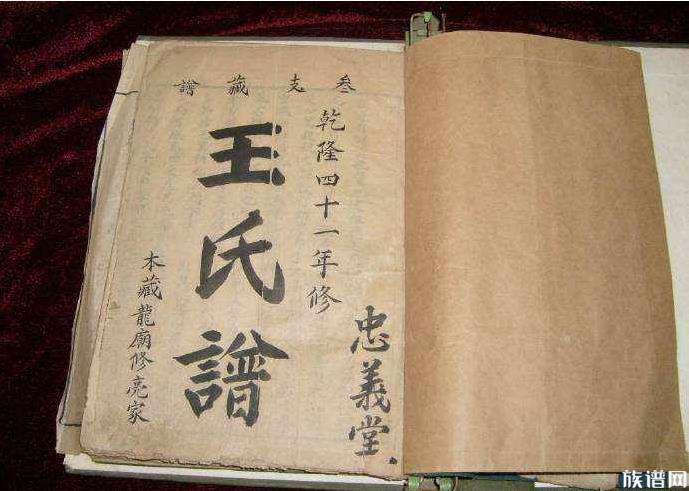 叁支藏譜
乾隆四十一年修
忠義堂.
王氏譜
本藏龍廟修亮家
族谱网